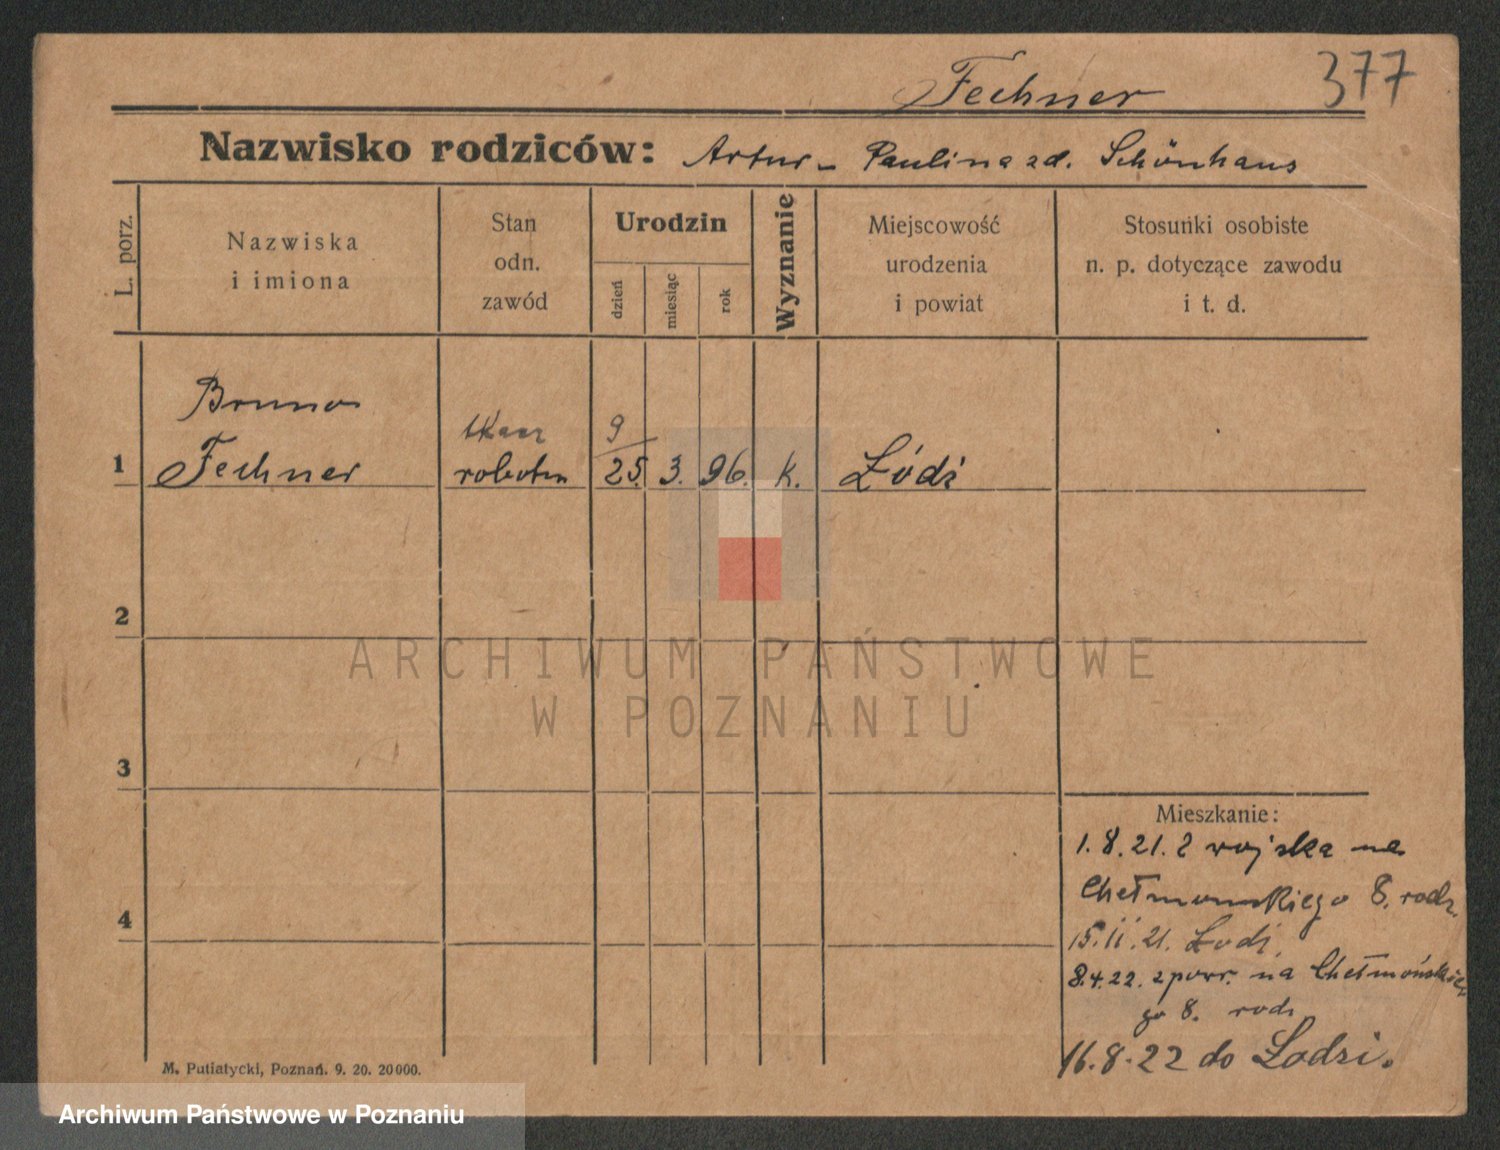 Fechner 377
Nazwisko rodziców: Artur - Paulina zd. Schönhaus
L. porz.
Nazwiska
i imiona
Stan
odn.
zawód
Urodzin
dzień
miesiąc
rok
Wyznanie
Miejscowość
urodzenia
i powiat
Stosunki osobiste
n. p. dotyczące zawodu
i t. d.
Bruno
tkacz 9
1 Fechner robotn 25. 3. 96. k. Łódź
2
ARCHIWUM PAŃSTWOWE
W POZNANIU
3
Mieszkanie:
1.8.21. z wojska na
Chełmońskiego 8. rodz.
4
15.11.21. Łodź
8.4.22. z powr. na Chełmońskie
go 8. rodz
16.8.22 do Łodzi.
M. Putiatycki, Poznań. 9. 20. 20000.
Archiwum Państwowe w Poznaniu